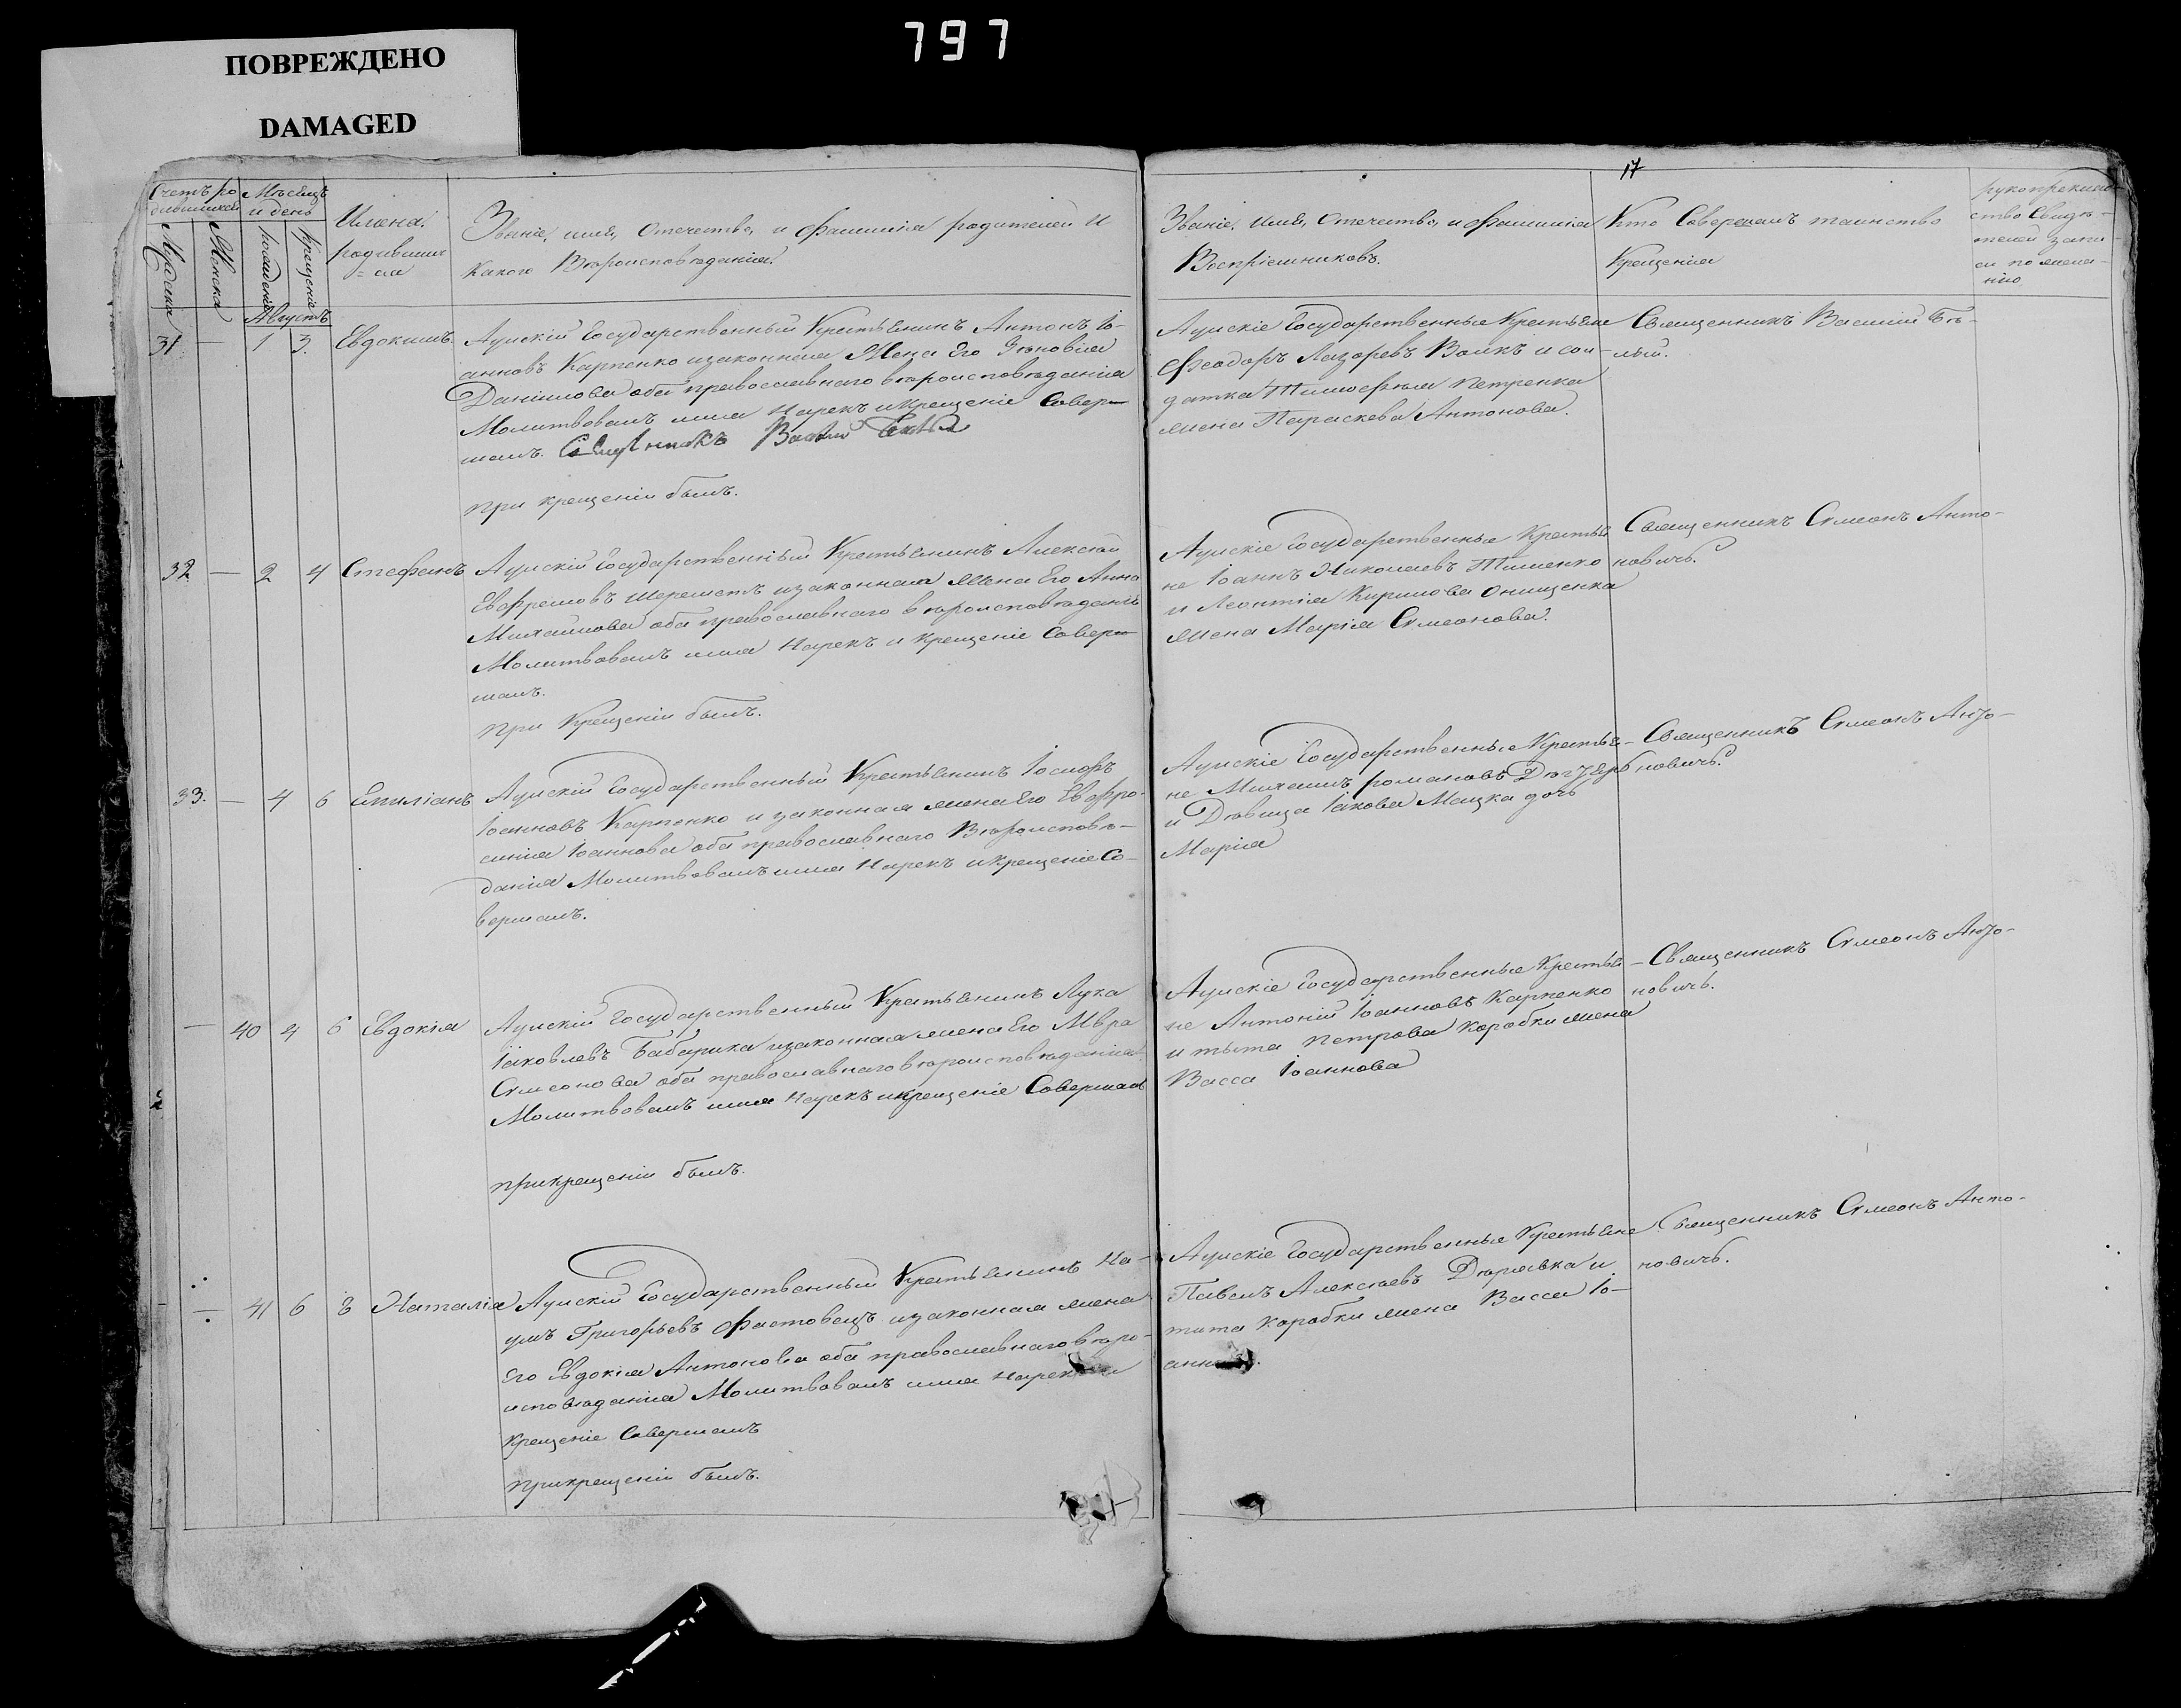 797
ПОВРЕЖДЕНО
DAMAGED
17
Счетъ ро
дившихся
Мужска
Женска
Мѣсяцъ
и день
рожденія
крещенія
Имена
родивших
=ся
Званіе, имя, Отечество, и фамилія родителей И
Какого Вѣроисповѣданія.
Званіе, имя, Отечество, и фамилія
Воспріемниковъ.
Кто Совершалъ таинство
Крещенія
рукоприклад
ство Свидѣ-
телей запи
си по жела-
нію
Августъ
31 — 1 3. Евдокимъ.
Аумскій Государственный Крестьянинъ Антонъ Іо-
анновъ Карпенко изаконная Жена Его Зѣновія
Даніилова оба православнаго вѣроисповѣданія
Молитвовалъ имя Нарекъ икрещеніе Совер-
шалъ. Священникъ
при крещеніи былъ.
Аумскіе Государственные Крестьяне
Феодоръ Лазаревъ Волкъ и сол-
датка Тимофѣя Петренка
жена Параскева Антонова.
Священникъ Василій Бѣ-
лый.
32 — 2 4 Стефанъ
Аумскій Государственный Крестьянинъ Алексѣй
Евфремовъ Шереметъ изаконная Жена Его Анна
Михайлова оба православнаго вѣроисповѣданія
Молитвовалъ имя Нарекъ и крещеніе Совер-
шалъ.
при Крещеніи былъ.
Аумскіе Государственные Крестья
не Іоаннъ Николаевъ Тименко
и Леонтія Кирилова Онищенка
жена Марія Симеонова.
Священникъ Симеонъ Анто-
новичъ.
33. — 4 6 Емиліанъ
Аумскій Государственный Крестьянинъ Іосифъ
Іоанновъ Карпенко и законная жена Его Евфро-
синія Іоаннова оба православнаго Вѣроисповѣ-
данія Молитвовалъ имя Нарекъ икрещеніе Со-
вершалъ.
Аумскіе Государственные Крестья-
не Михаилъ романовъ
и Дѣвица Іакова Мацка дочь
Марія
Священникъ Симеонъ Анто-
новичъ.
— 40 4 6 Евдокія
Аумскій Государственный Крестьянинъ Лука
Іаковлевъ Бабарика изаконная жена Его Мвра
Симеонова оба православнаго вѣроисповѣданія
Молитвовалъ имя Нарекъ икрещеніе Совершалъ
прикрещеніи былъ.
Аумскіе Государственные Крестья-
не Антоній Іоанновъ Карпенко
и тыта Петрова Коробки жена
Васса Іоаннова
Священникъ Симеонъ Анто-
новичъ.
— 41 6 8 Наталія
Аумскій Государственный Крестьянинъ На-
умъ Григорьевъ Фастовецъ изаконная жена
Его Евдокія Антонова оба православнаго вѣро-
исповѣданія Молитвовалъ имя Нарекъ и
Крещеніе Совершалъ
прикрещеніи былъ.
Аумскіе Государственные Крестьяне
Павелъ Алексѣевъ Дюрявка и
тита Коробки жена Васса Іо-
Священникъ Симеонъ Анто-
новичъ.